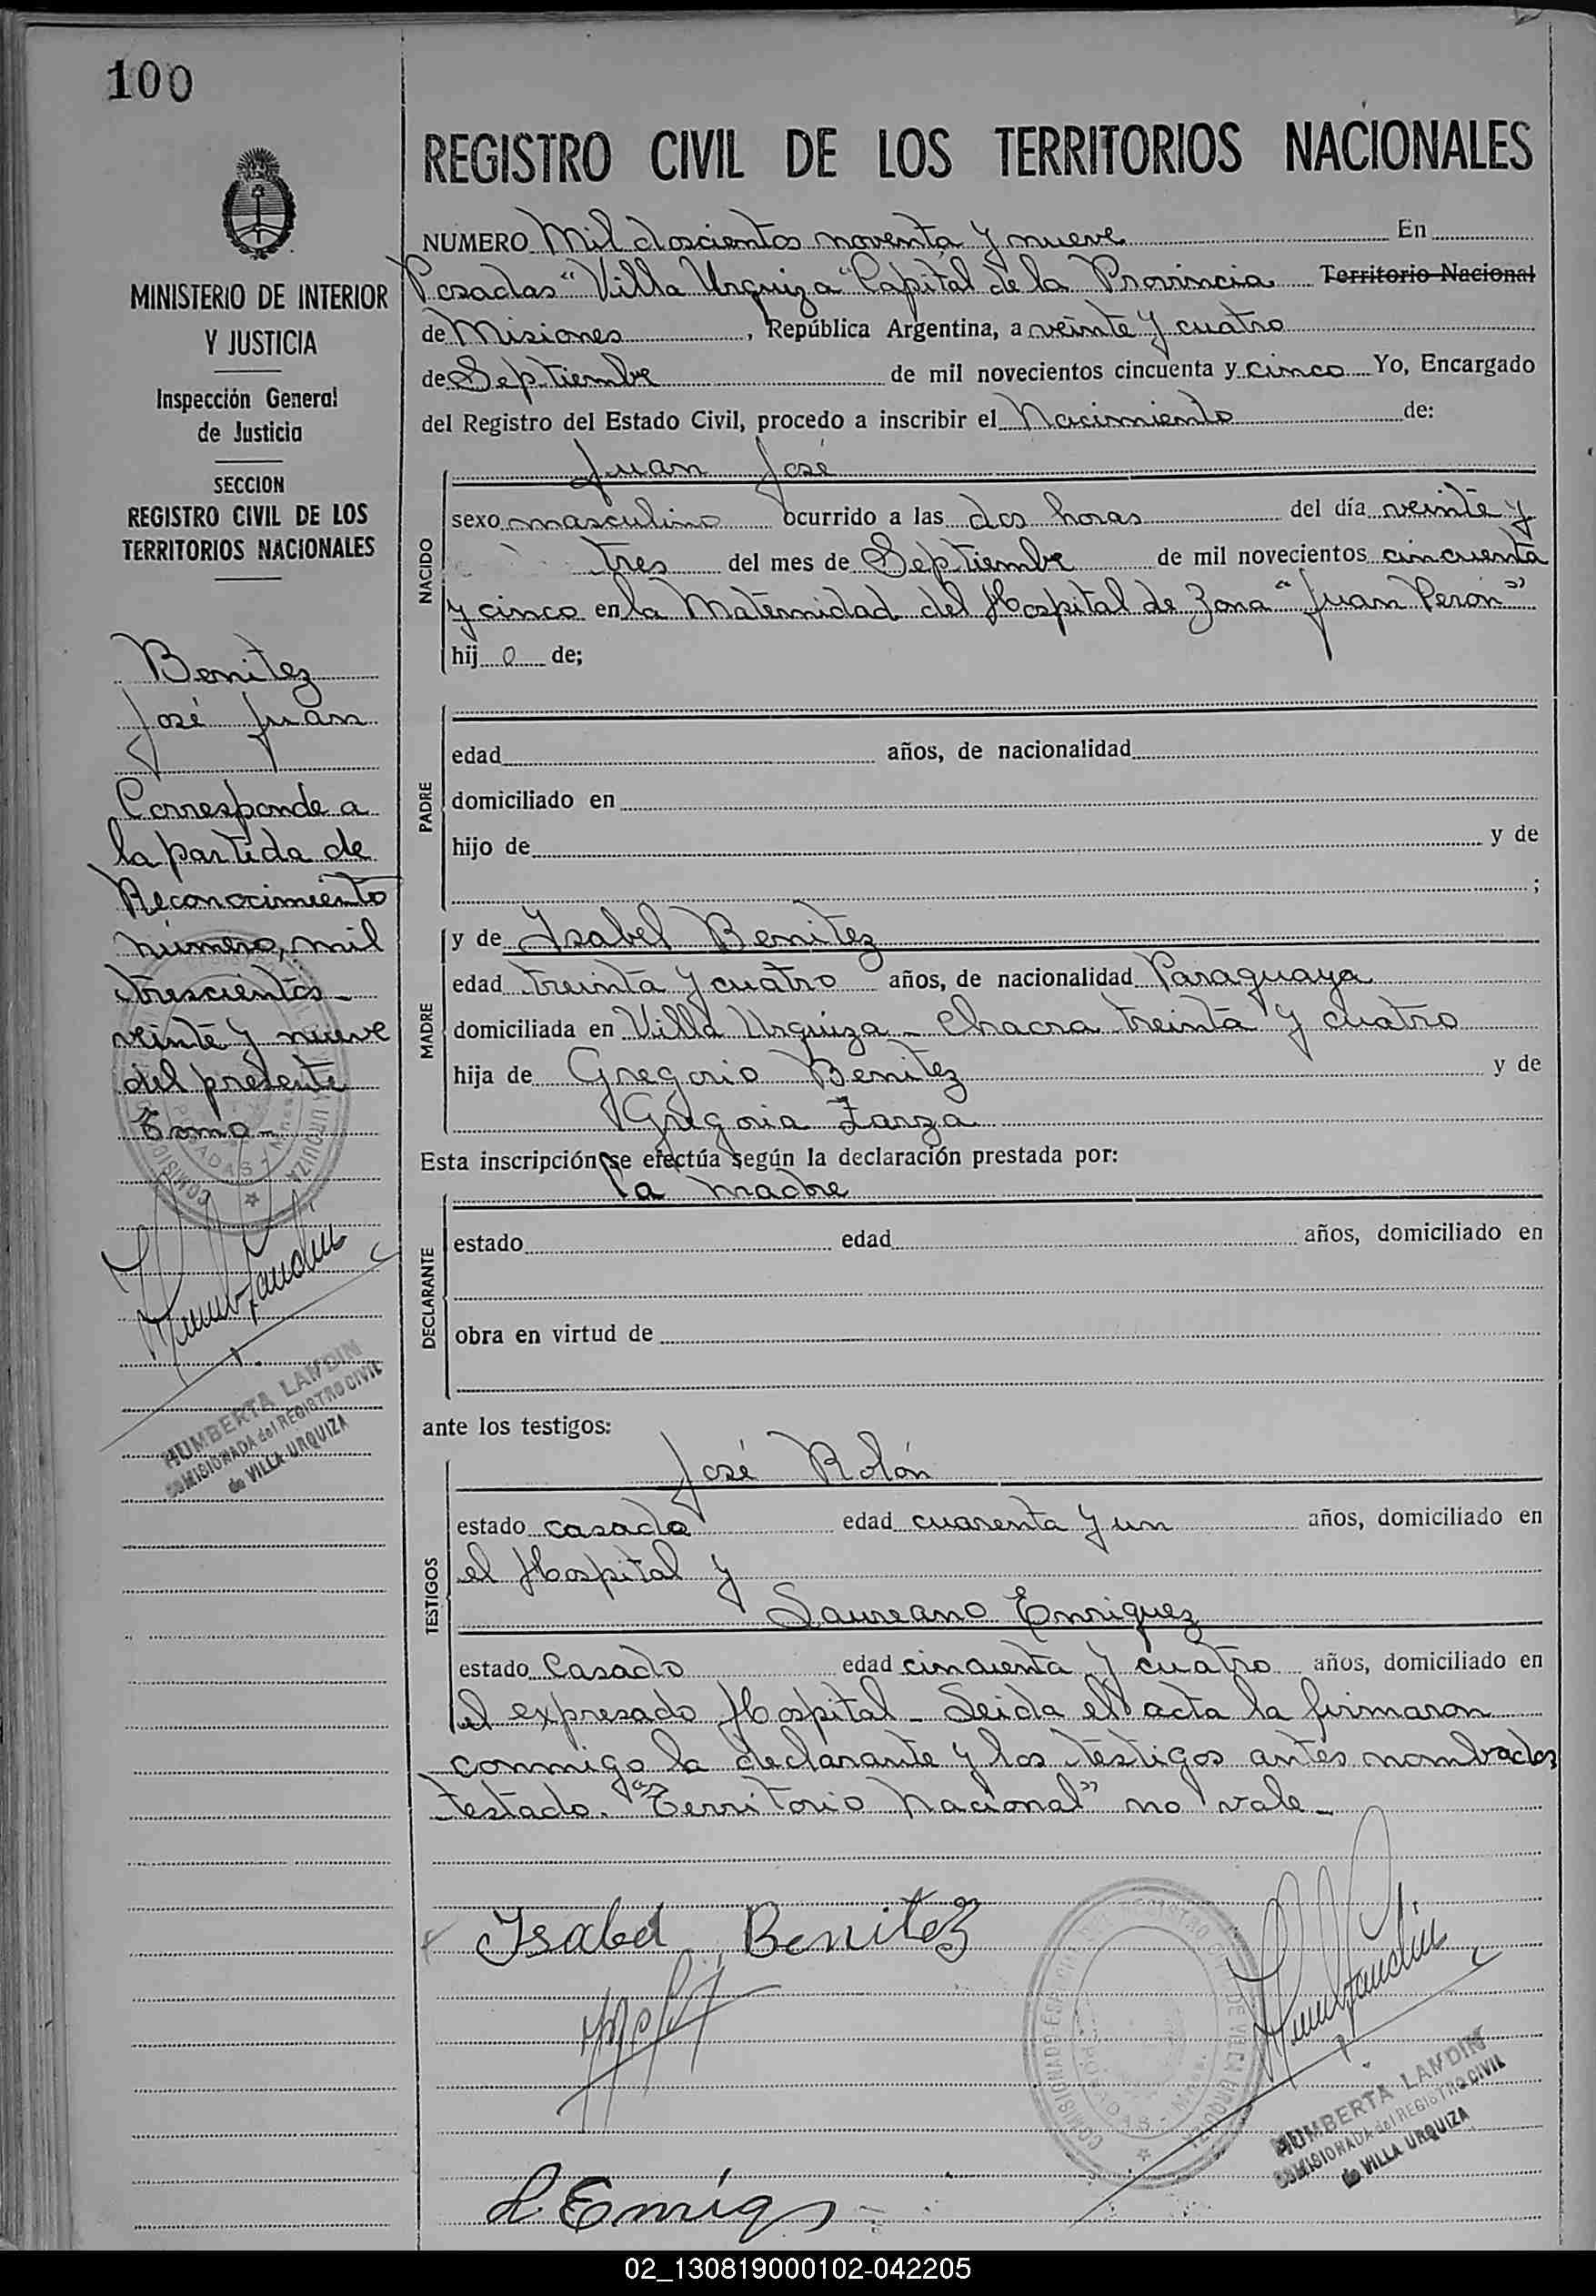 100
MINISTERIO DE INTERIOR
Y JUSTICIA
Inspección General
de Justicia
SECCION
REGISTRO CIVIL DE LOS
TERRITORIOS NACIONALES
Benitez
José Juan
Corresponde a
la partida de
Reconocimiento
número, mil
trescientos
veinte y nueve
del presente
Tomo -
HUMBERTA LANDIN
COMISIONADA del REGISTRO CIVIL
de VILLA URQUIZA
REGISTRO CIVIL DE LOS TERRITORIOS NACIONALES
NUMERO Mil doscientos noventa y nueve En
Posadas "Villa Urquiza" Capital de la Provincia Territorio Nacional
de Misiones, República Argentina, a veinte y cuatro
de Septiembre de mil novecientos cincuenta y cinco Yo, Encargado
del Registro del Estado Civil, procedo a inscribir el Nacimiento de:
Juan José
NACIDO
sexo masculino ocurrido a las dos horas del día veinte y
tres del mes de Septiembre de mil novecientos cincuenta
y cinco en la Maternidad del Hospital de Zona "Juan Perón"
hij o de;
PADRE
edad años, de nacionalidad
domiciliado en
hijo de y de
;
MADRE
y de Isabel Benitez
edad treinta y cuatro años, de nacionalidad Paraguaya
domiciliada en Villa Urquiza - Chacra treinta y cuatro
hija de Gregorio Benitez y de
Gregoria Zarza
Esta inscripción se efectúa según la declaración prestada por:
la madre
DECLARANTE
estado edad años, domiciliado en
obra en virtud de
ante los testigos:
TESTIGOS
José Rolón
estado casado edad cuarenta y un años, domiciliado en
el Hospital y
Laureano Enriquez
estado Casado edad cincuenta y cuatro años, domiciliado en
el expresado Hospital - Leida el acta la firmaron
conmigo la declarante y los testigos antes nombrados
testado. "Territorio Nacional" no vale -
Isabel Benitez
HUMBERTA LANDIN
COMISIONADA del REGISTRO CIVIL
de VILLA URQUIZA
02_130819000102-042205